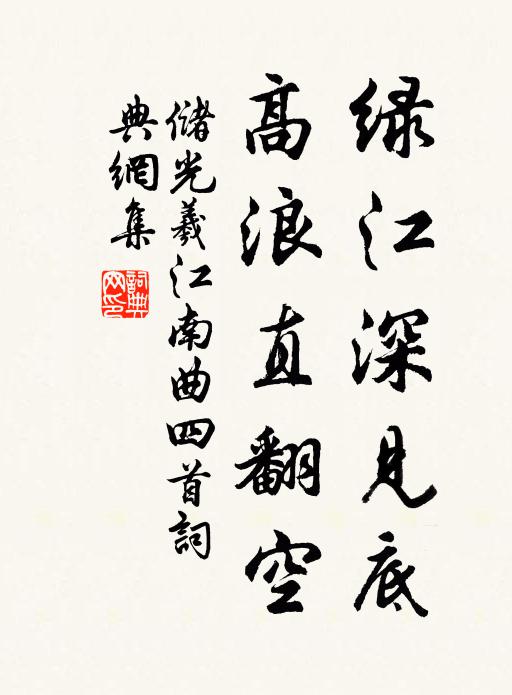 绿江深见底
高浪直翻空
储光羲江南曲四首詞
典網集
詞典网印